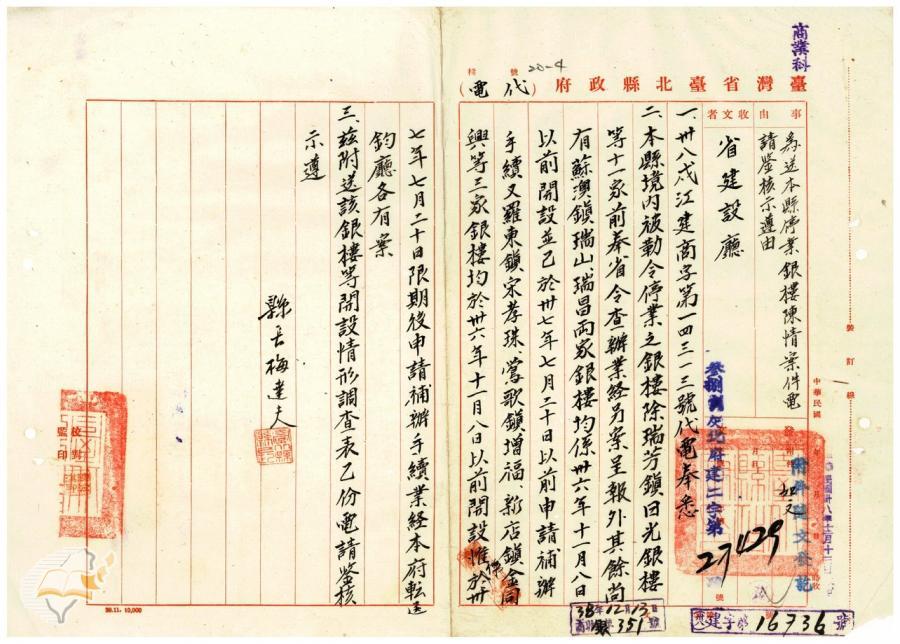 商業科
臺灣省臺北縣政府(代電)
號
20-4
事由
為送本縣停業銀樓陳情案件電
請鑒核示遵由
收文者
省建設廳
一、卅八戌江建商字第一四三一三號代電奉悉
二、本縣境內被勒令停業之銀樓除瑞芳鎮日光銀樓
等十一家前奉省令查辦業經另案呈報外其餘尚
有蘇澳鎮瑞山、瑞昌両家銀樓均係卅六年十一月八日
以前開設並已於卅七年七月二十日以前申請補辦
手續又羅東鎮宋孝珠、鶯歌鎮增福、新店鎮金同
興等三家銀樓均於卅六年十一月八日以前開設惟於卅
七年七月二十日限期後申請補辦手續業經本府轉送
鈞廳各有案
三、茲附送該銀樓等開設情形調查表乙份電請鑒核
示遵
縣長梅達夫
中華民國
裝訂線
附件隨文發訖
北府建二字第
27429
號
校對
監印
38年12月13日
351
建字第16736號
30.11. 10,000